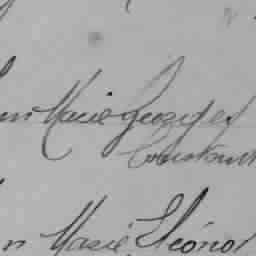 Marie Georges
Constant
n Marie Eléonor